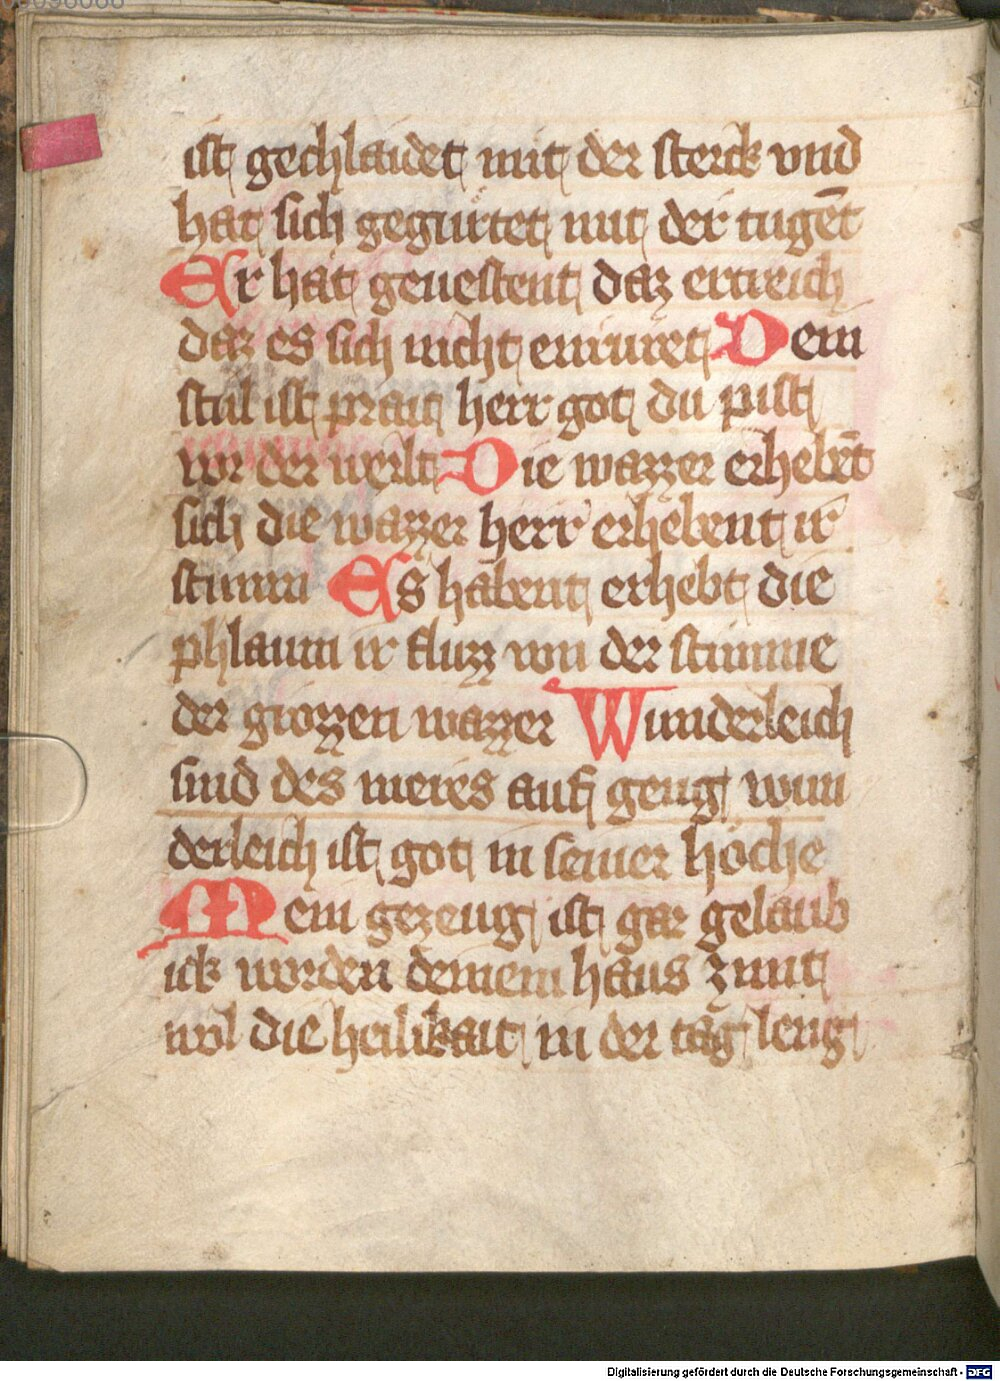 ist gechlaidet mit der sterck vnd
hat sich gegürtet mit der tugēt
Er hat geuestent daz ertreich
daz es sich nicht enruret Dein
stul ist prait herr got du pist
vor der werlt Die wazzer erhebēt
sich die wazzer herr erhebent ir
stimm Es habent erhebt die
phlaum ir fluzz von der stimme
der grozzen wazzer Wunderleich
sind des meres auf geng wun
derleich ist got in seiner höche
Mein gezeug ist gar gelaub
ick worden deinem haus zimt
wol die heilikait in der tag leng
Digitalisierung gefördert durch die Deutsche Forschungsgemeinschaft - DFG